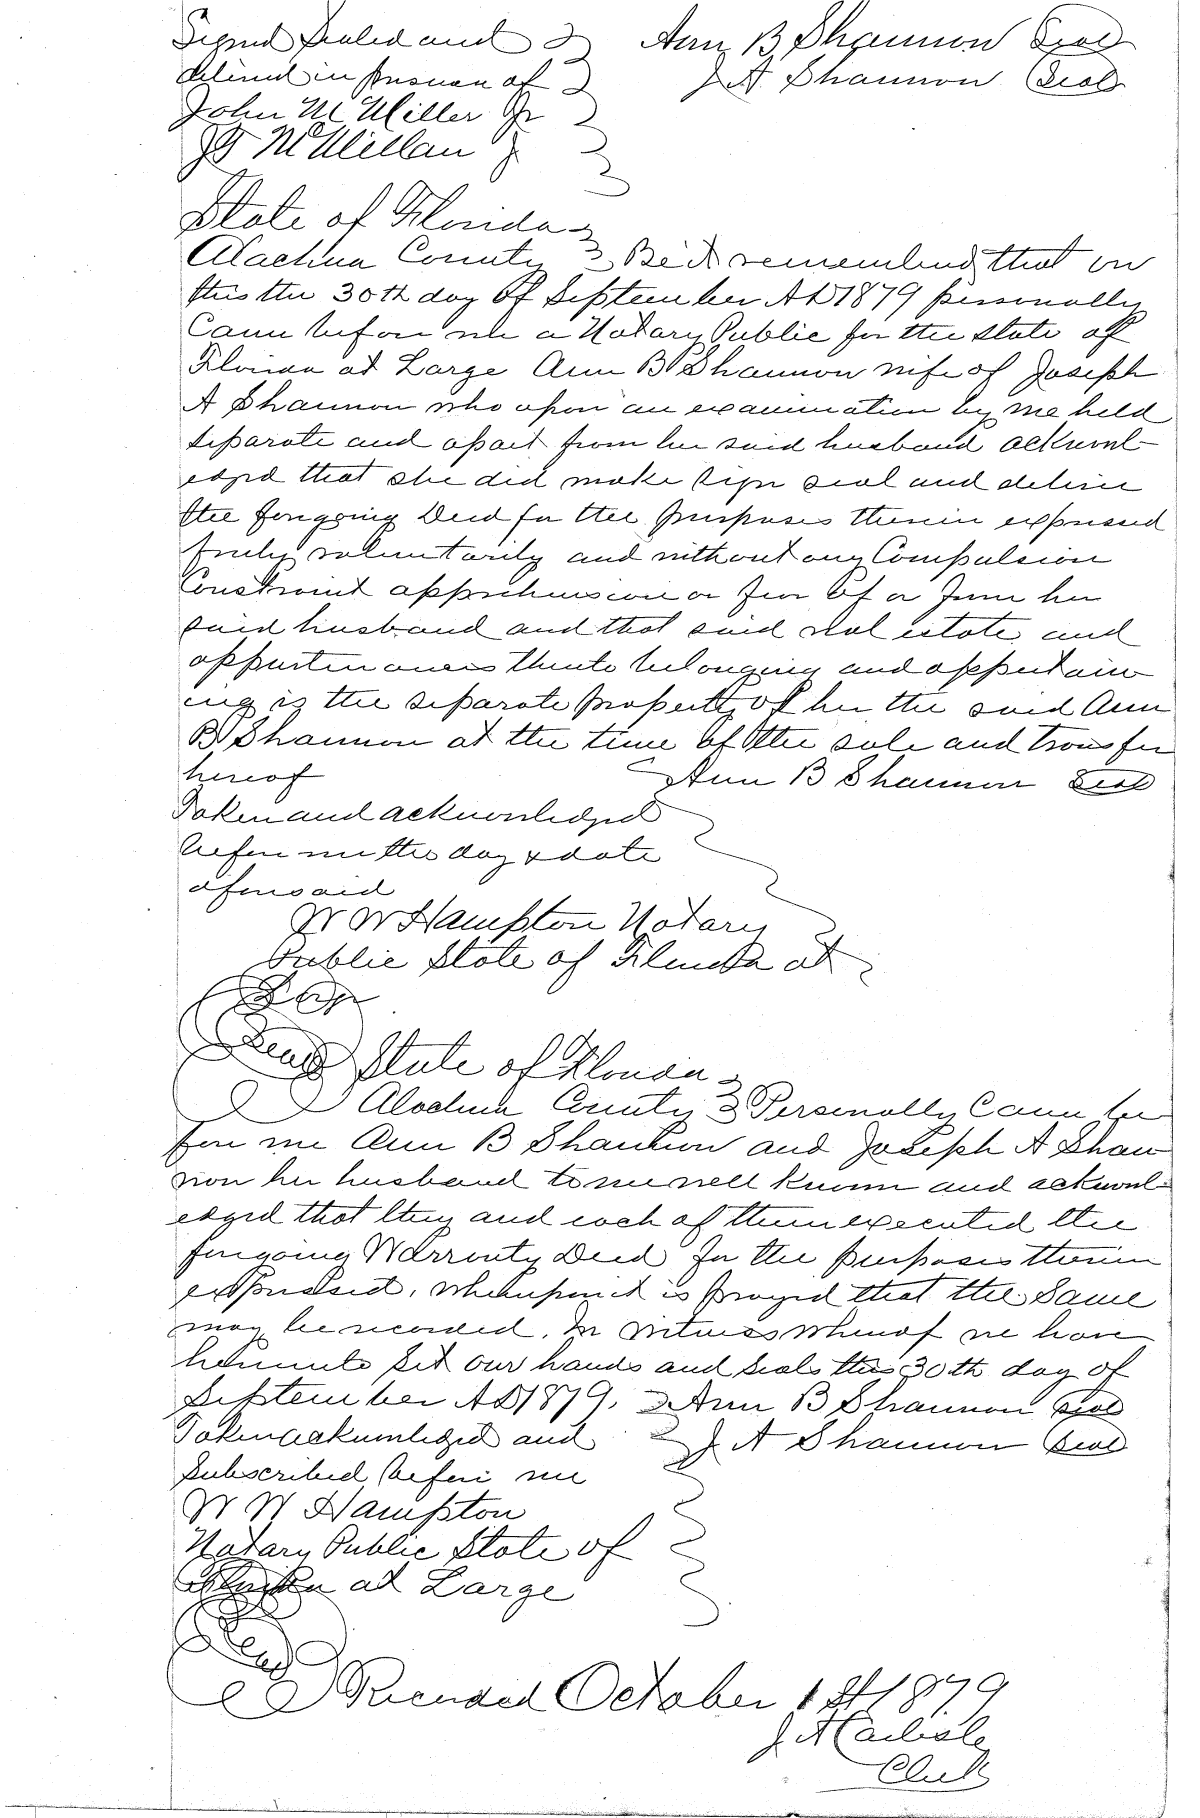 Signed Sealed and Ann B Shannon Seal
delivered in presence of J A Shannon Seal
John M Miller Jr
McMillan
State of Florida
Alachua County Be it remembered that on
this the 30th day of September AD 1879 personally
Came before me a Notary Public for the State of
Florida at Large Ann B Shannon wife of Joseph
A Shannon who upon an examination by me held
separate and apart from her said husband acknowl-
edged that she did make sign seal and deliver
the foregoing Deed for the purposes therein expressed
freely voluntarily and without any Compulsion
Constraint apprehension or fear of or from her
said husband and that said real estate and
appurtenances thereto belonging and appertain
ing is the separate property of her the said Ann
B Shannon at the time of the sale and transfer
hereof Ann B Shannon Seal
Taken and acknowledged
before me the day & date
aforesaid
W W Hampton Notary
Public State of Florida at
Large
Seal State of Florida
Alachua County Personally Came be
fore me Ann B Shannon and Joseph A Shan
non her husband to me well known and acknowl-
edged that they and each of them executed the
foregoing Warranty Deed for the purposes therein
expressed, whereupon it is prayed that the Same
may be recorded. In witness whereof we have
hereunto set our hands and seals this 30th day of
September AD 1879. Ann B Shannon Seal
Taken acknowledged and J A Shannon Seal
Subscribed before me
W W Hampton
Notary Public State of
Florida at Large
Seal
Recorded October 1st 1879
J A Carlisle
Clerk